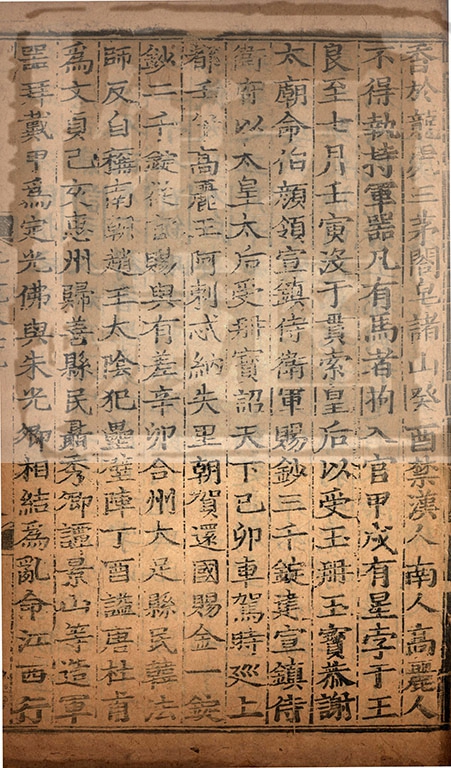 香於龍虎三茅閣皂諸山癸酉禁漢人南人高麗人
不得執持軍器凡有馬者拘入官甲戌有星孛于王
良至七月壬寅沒于貫索皇后以受玉冊玉寶恭謝
太廟命伯顏領宣鎮侍衛軍賜鈔三千錠建宣鎮侍
衛府以太皇太后受冊寶詔天下己卯車駕時廵上
都壬高麗王阿剌忒納失里朝賀還國賜金一錠
鈔二千錠從官賜與有差辛卯合州大足縣民韓法
師反自稱南朝趙王太陰犯壘壁陣丁酉謚唐杜甫
爲文貞己亥惠州歸善縣民聶秀卿譚景山等造軍
器拜戴甲爲定光佛與朱光卿相結爲亂命江西行